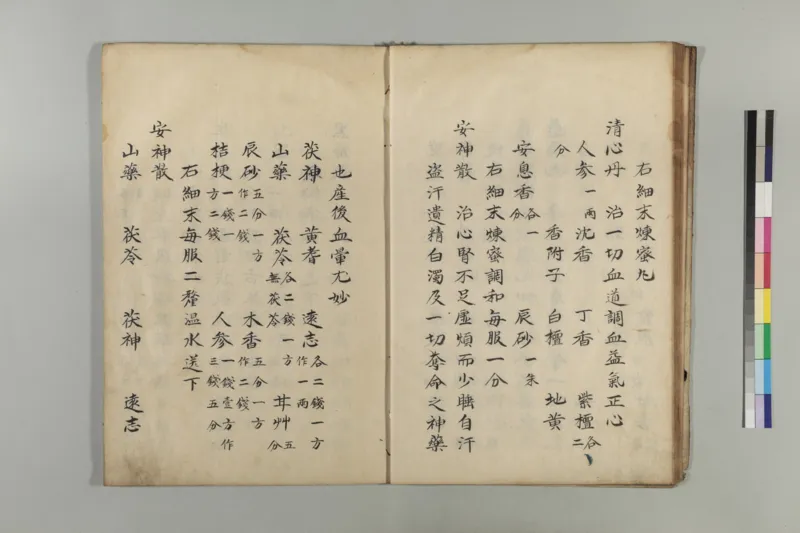 右細末煉蜜丸
清心丹　治一切血道調血益氣正心
人参一両沈香　丁香　紫檀各二
分　香附子　白檀　地黄
安息香各一分　辰砂一朱
右細末煉蜜調和毎服一分
安神散　治心腎不足虚煩而少睡自汗
盗汗遺精白濁及一切奪命之神藥
也産後血暈尤妙
茯神　黄耆　遠志各二錢一方作一両
山藥　茯苓各二錢一方無茯苓　甘艸五分
辰砂五分一方作二錢　木香五分一方作二錢
桔梗一錢一方二錢　人参一錢壹方作三錢五分
右細末毎服二釐温水送下
安神散
山藥　茯苓　茯神　遠志